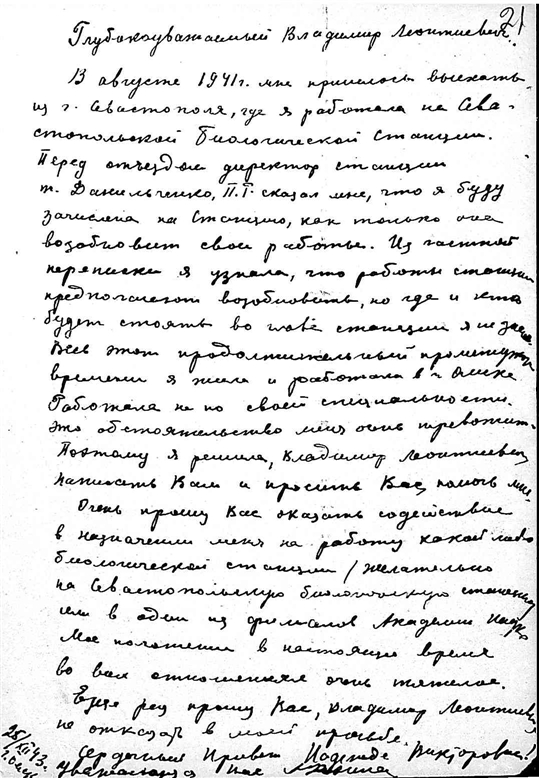 21
Глубокоуважаемый Владимир Леонтиевич.
В августе 1941г. мне пришлось выехать
из г. Севастополя, где я работала на Сева-
стопольской Биологической Станции.
Перед отъездом директор станции
т. Данильченко, П.Г. сказал мне, что я буду
зачислена на Станцию, как только она
возобновит свои работы. Из частной
переписки я узнала, что работы станции
предполагают возобновить, но где и кто
будет стоять во главе станции я не знаю
Весь этот продолжительный промежуток
времени я жила и работала в г. Омске
Работала не по своей специальности.
Это обстоятельство меня очень тревожит.
Поэтому я решила, Владимир Леонтиевич
написать Вам и просить Вас помочь мне.
Очень прошу Вас оказать содействие
в назначении меня на работу какой либо
биологической станции /желательно
на Севастопольскую биологическую станцию/
или в один из филиалов Академии Наук
Мое положение в настоящее время
во всех отношениях очень тяжелое.
Еще раз прошу Вас, Владимир Леонтиевич
не отказать в моей просьбе.
Сердечный Привет Надежде Викторовне!
уважающая Вас
25/XII 43г.
г. Омск